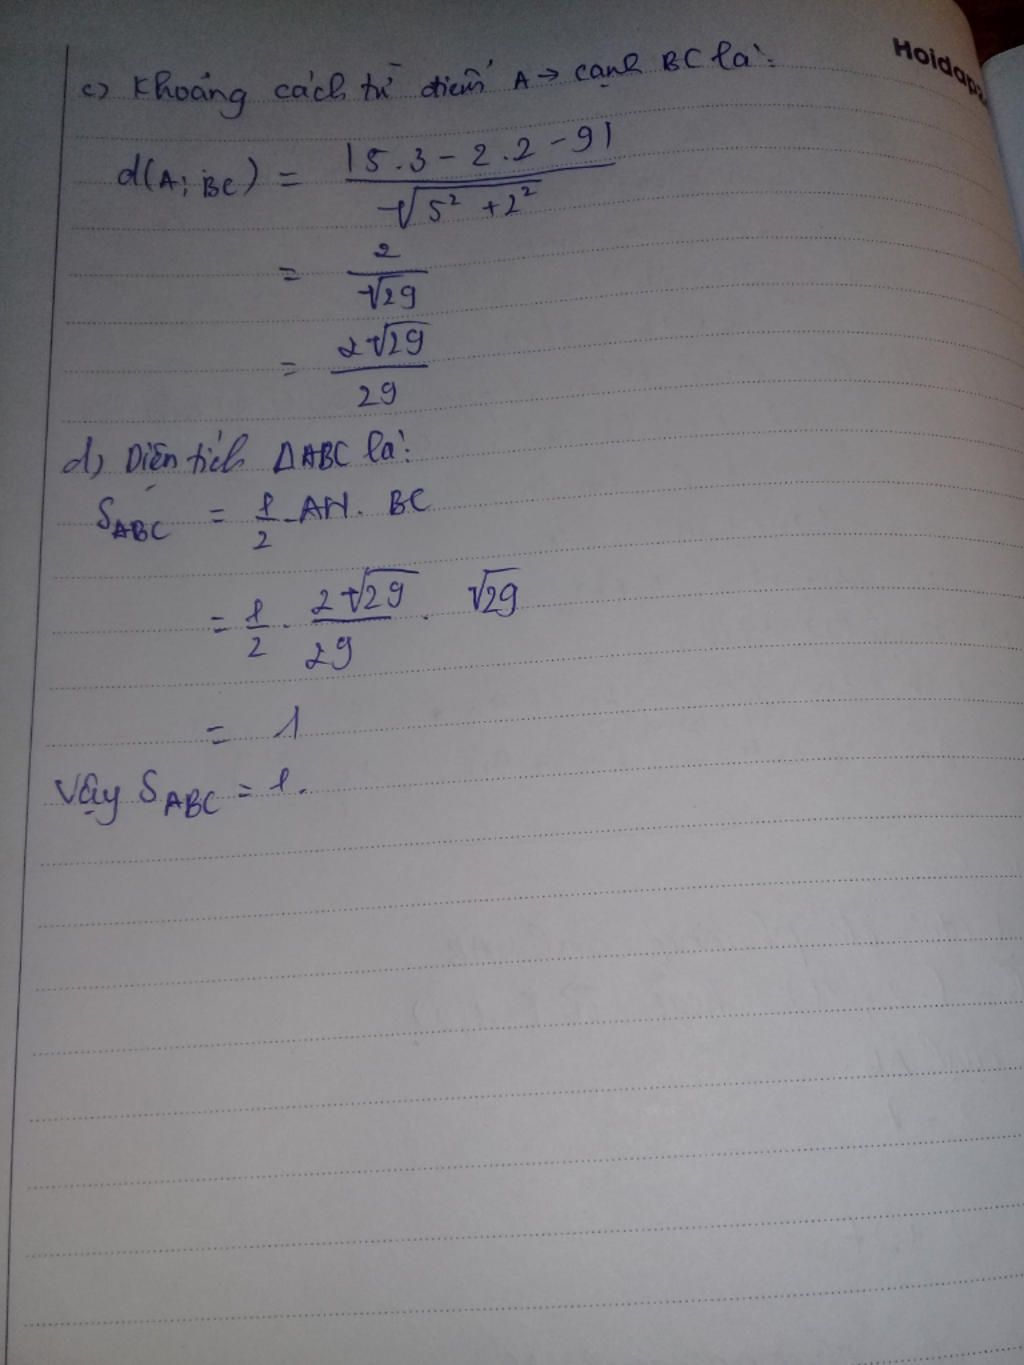 Hoidap
c) Khoảng cách từ điểm A → cạnh BC là:
d(A; BC) = |5.3 - 2.2 - 9| / √(5² + 2²)
= 2 / √29
= 2√29 / 29
d) Diện tích ΔABC là:
S_ABC = 1/2 . AH . BC
= 1/2 . 2√29 / 29 . √29
= 1
Vậy S_ABC = 1.